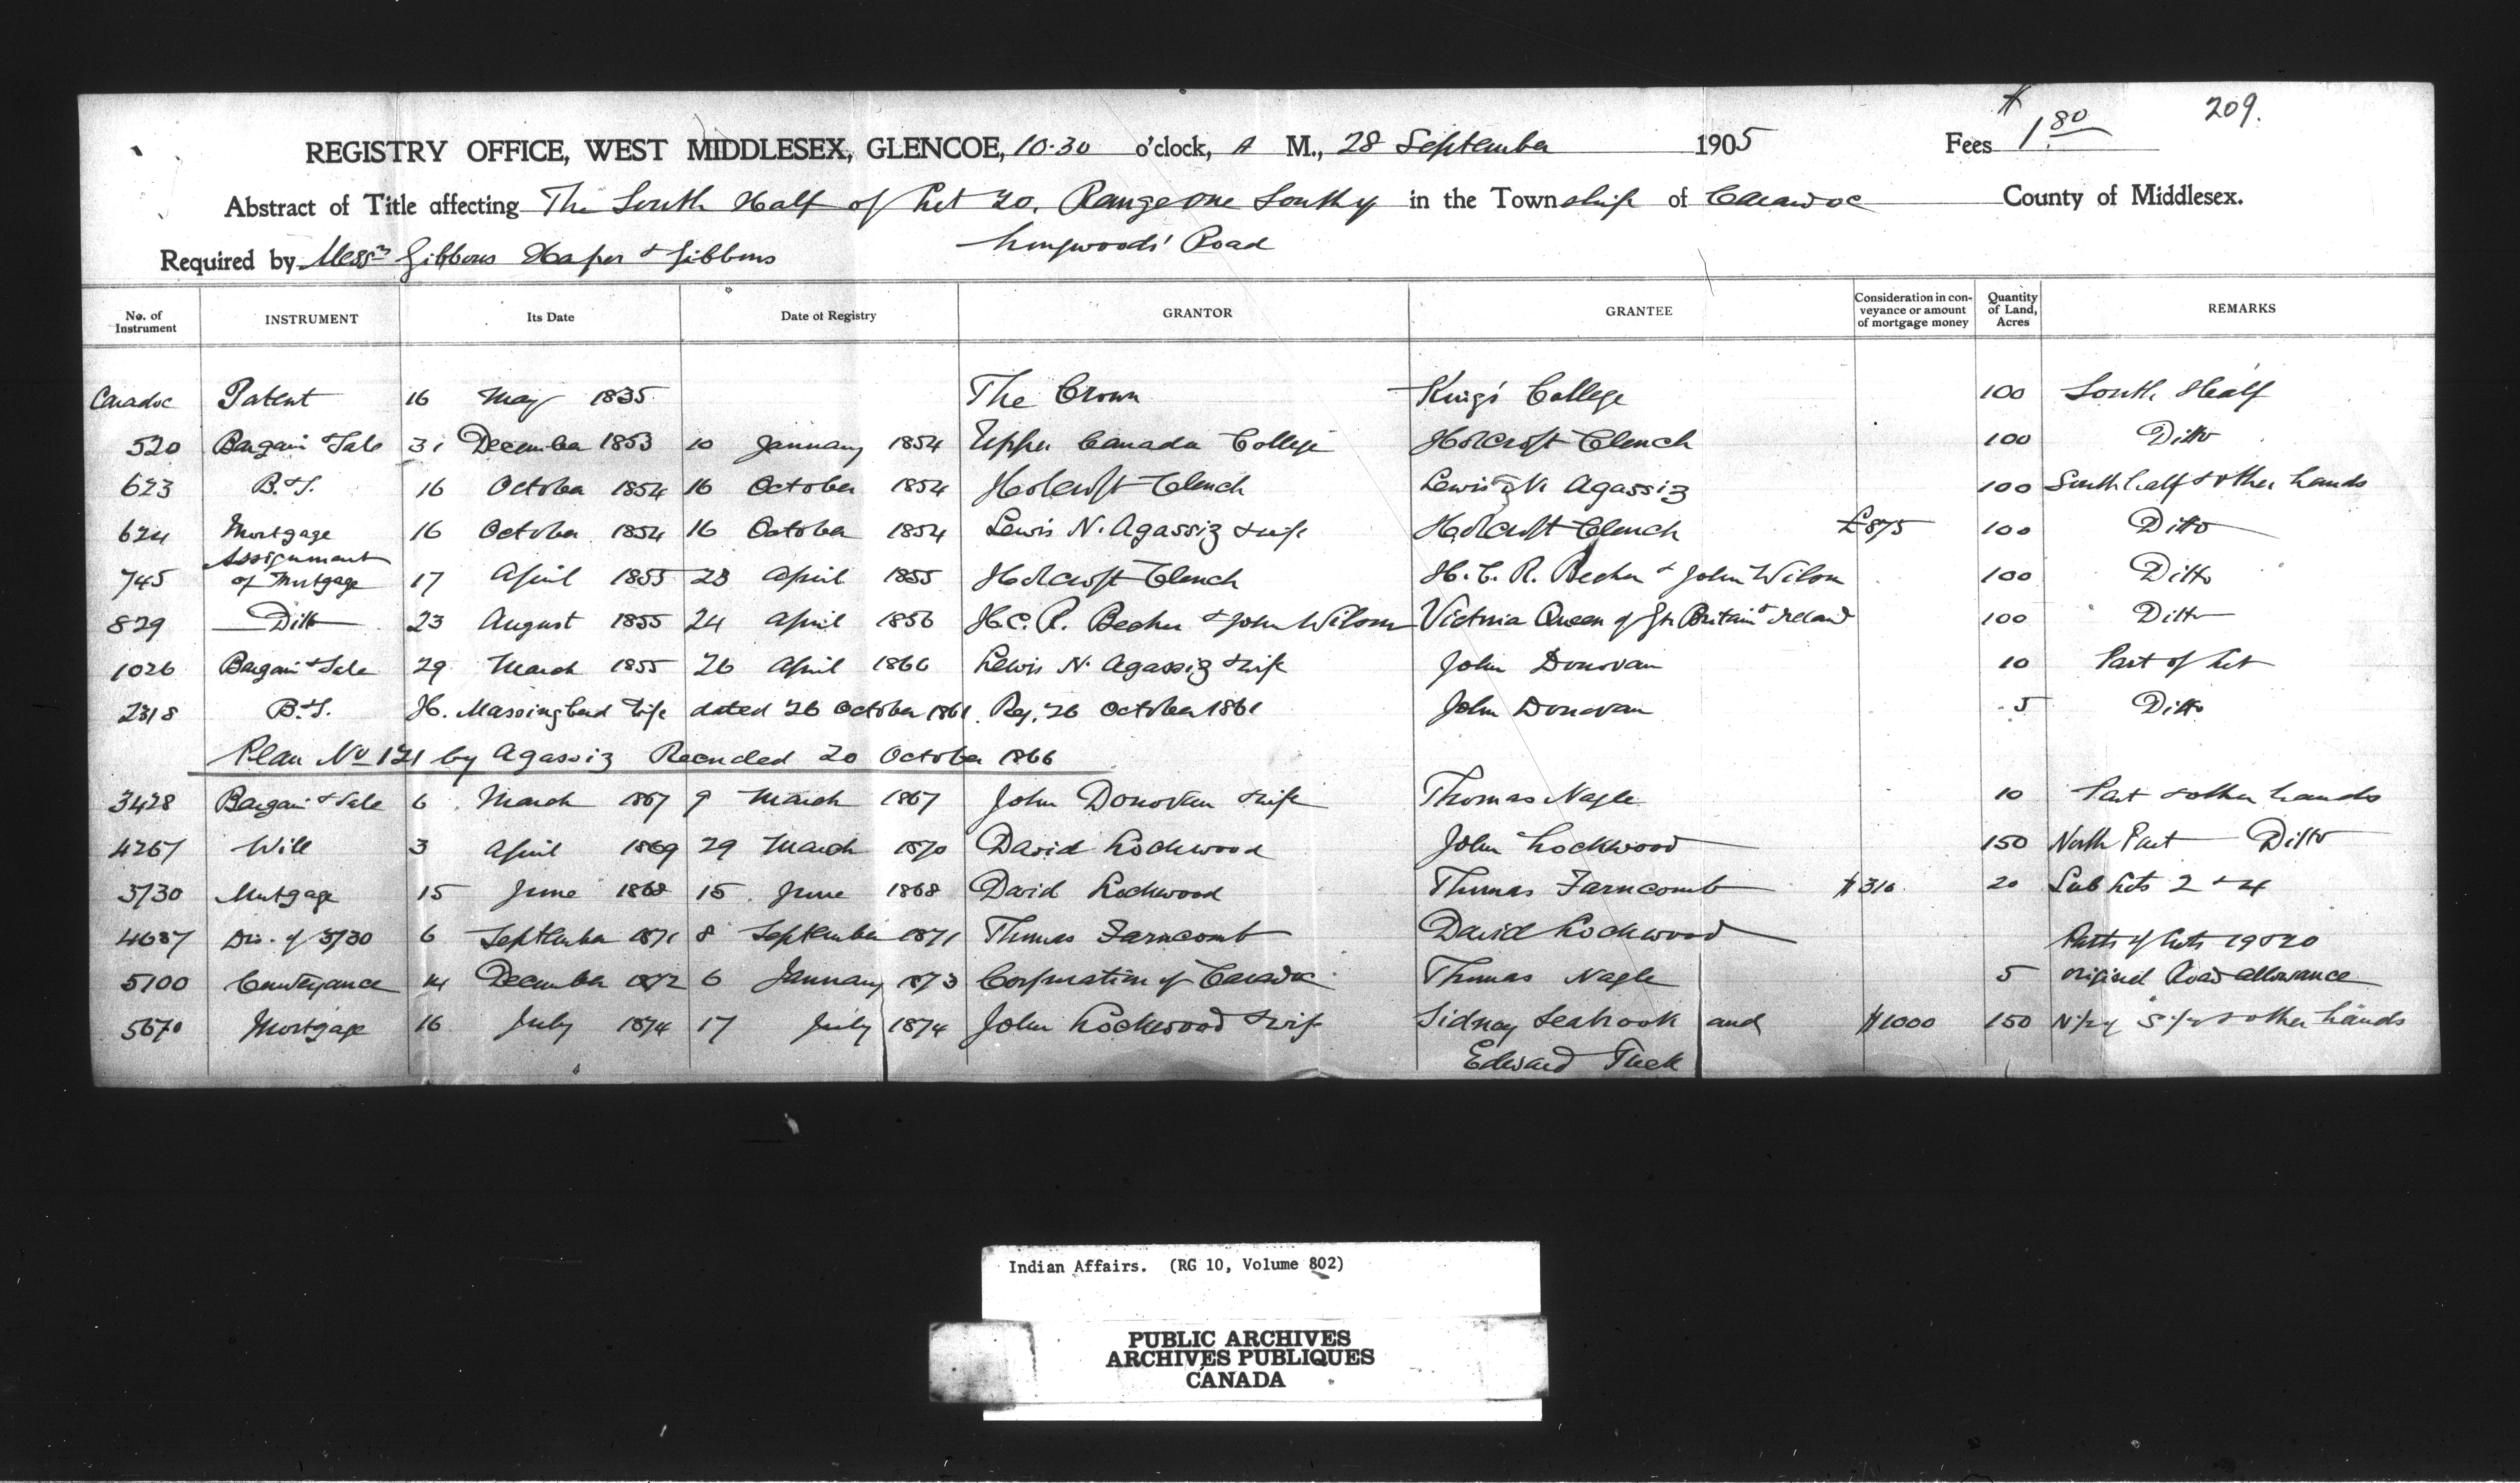 209.
REGISTRY OFFICE, WEST MIDDLESEX, GLENCOE, 10.30 o'clock, A M., 28 September 1905 Fees $1.80
Abstract of Title affecting The South Half of Lot 20, Range one South of in the Township of Caradoc County of Middlesex.
Longwoods' Road
Required by Messrs Gibbons Harper & Gibbons
No. of Instrument INSTRUMENT Its Date Date of Registry GRANTOR GRANTEE Consideration in conveyance or amount of mortgage money Quantity of Land, Acres REMARKS
Caradoc Patent 16 May 1835 The Crown King's College 100 South Half
520 Bargain & Sale 31 December 1853 10 January 1854 Upper Canada College Holcroft Clench 100 Ditto
623 B.&S. 16 October 1854 16 October 1854 Holcroft Clench Lewis N. Agassiz 100 South half & other Lands
624 Mortgage 16 October 1854 16 October 1854 Lewis N. Agassiz & wife Holcroft Clench £875 100 Ditto
745 Assignment of Mortgage 17 April 1855 23 April 1855 Holcroft Clench H.C.R. Becher & John Wilson 100 Ditto
829 Ditto 23 August 1855 24 April 1856 H.C.R. Becher & John Wilson Victoria Queen of Gt Britain & Ireland 100 Ditto
1026 Bargain & Sale 29 March 1855 26 April 1860 Lewis N. Agassiz & wife John Donovan 10 Part of Lot
2318 B.&S. H. Massingberd & wife dated 26 October 1861. Reg. 26 October 1861 John Donovan 5 Ditto
Plan No 121 by Agassiz Recorded 20 October 1866
3428 Bargain & Sale 6 March 1867 9 March 1867 John Donovan & wife Thomas Nagle 10 Part & other Lands
4267 Will 3 April 1869 29 March 1870 David Lockwood John Lockwood 150 North Part Ditto
3730 Mortgage 15 June 1868 15 June 1868 David Lockwood Thomas Farncomb $316 20 Sub Lots 2 & 4
4687 Dis. of 3730 6 September 1871 8 September 1871 Thomas Farncomb David Lockwood Parts of Lots 19 & 20
5100 Conveyance 14 December 1872 6 January 1873 Corporation of Caradoc Thomas Nagle 5 original Road allowance
5670 Mortgage 16 July 1874 17 July 1874 John Lockwood & wife Sidney Seabrook and $1000 150 N½ of S½ & other Lands
Edward Tuck
Indian Affairs. (RG 10, Volume 802)
PUBLIC ARCHIVES
ARCHIVES PUBLIQUES
CANADA